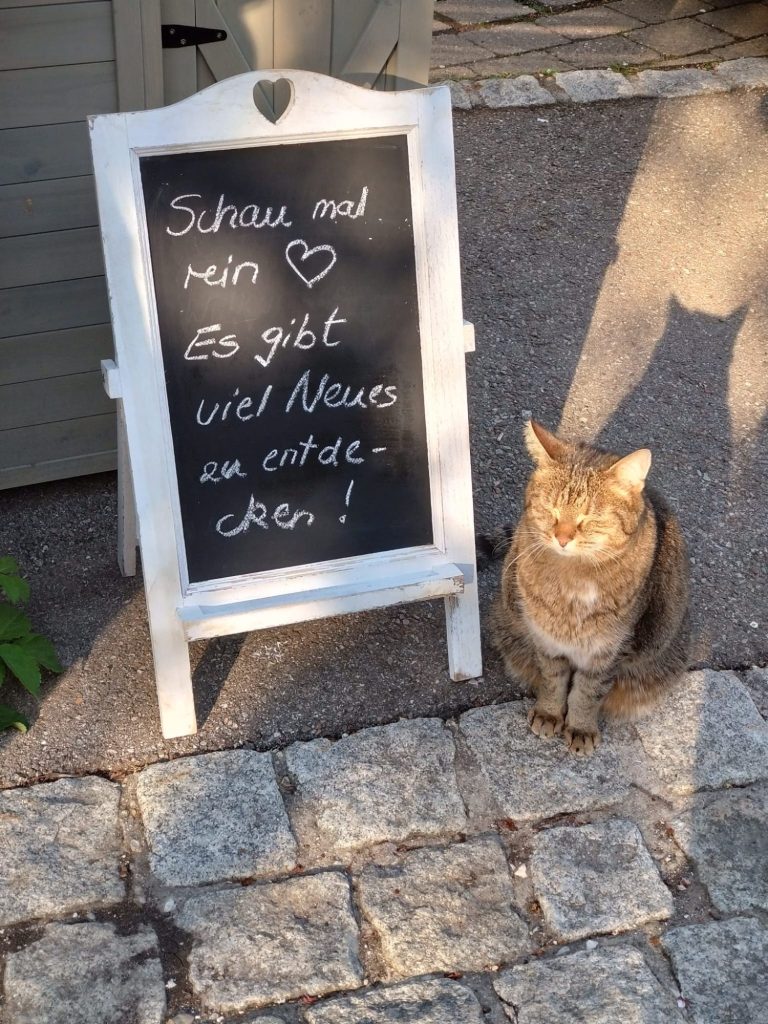 Schau mal
rein ♡
Es gibt
viel Neues
zu entde-
cken!